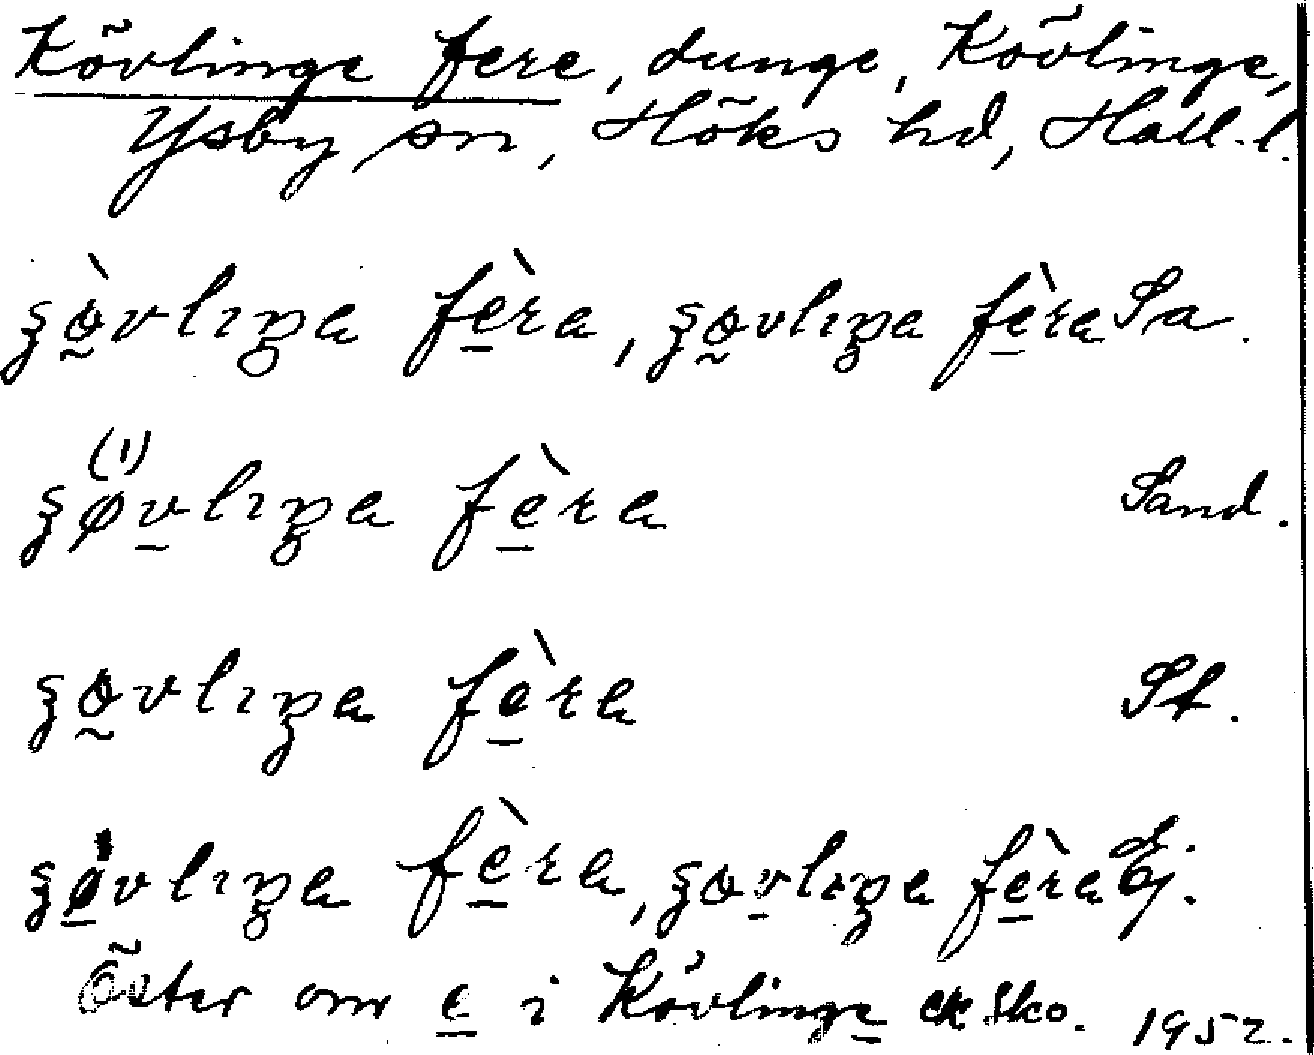 Kövlinge fere, dunge, Kövlinge,
Ysby sn, Höks hd, Hall. l.
ʂø̀vlıŋa fèra, ʂøvlıŋa fèra Sa.
ʂø(ˈ)vlıŋa fèra Sand.
ʂøvlıŋa fèra St.
ʂøvlıŋa fèra, ʂøvlıŋa fèra Ej.
Öster om e i Kövlinge ek sko. 1952.